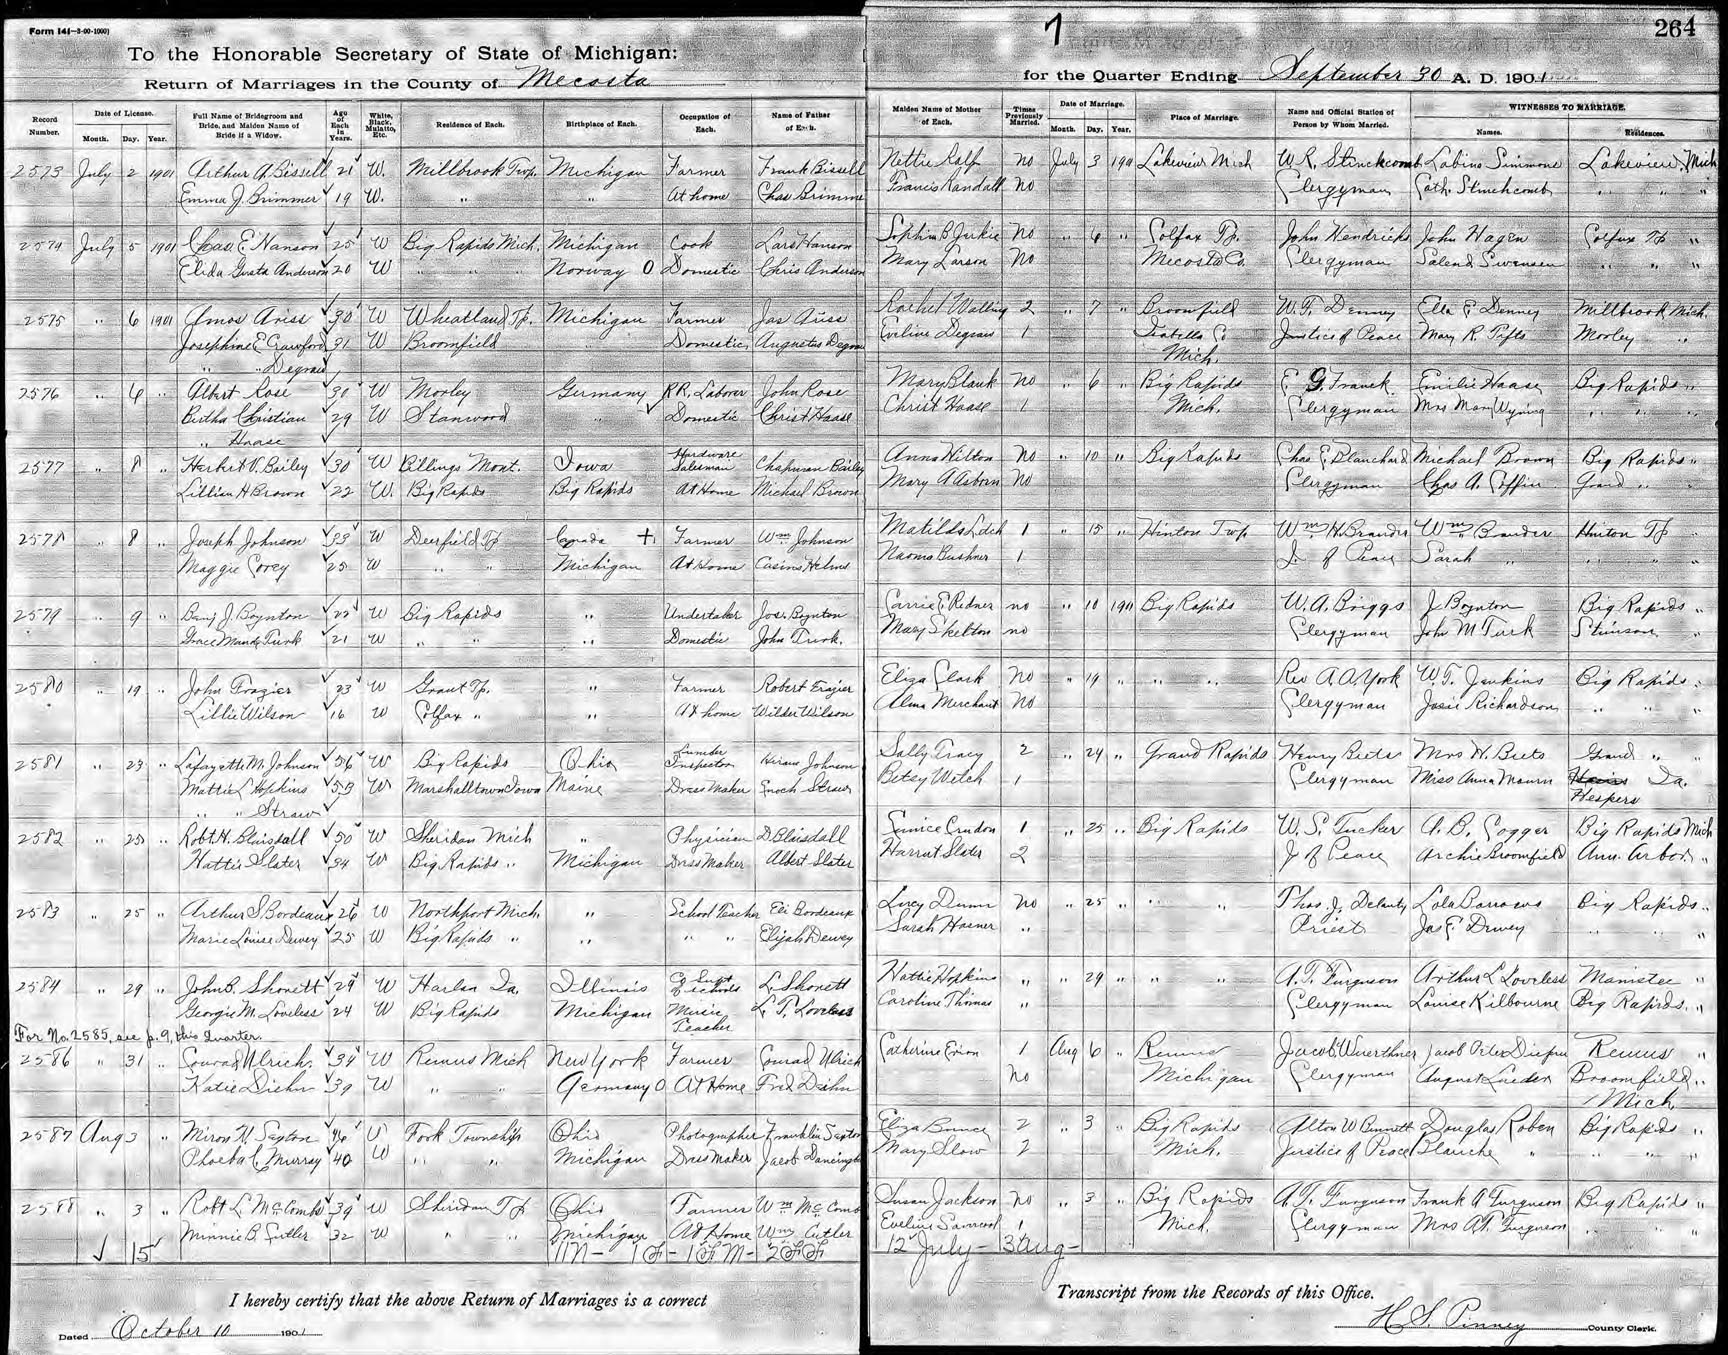 Form 141—3-00-1000)
To the Honorable Secretary of State of Michigan:
Return of Marriages in the County of Mecosta
Record Number. Date of License. Month. Day. Year. Full Name of Bridegroom and Bride, and Maiden Name of Bride if a Widow. Age of Each in Years. White, Black, Mulatto, Etc. Residence of Each. Birthplace of Each. Occupation of Each. Name of Father of Each.
2573 July 2 1901 Arthur A. Bissell 21 W. Millbrook Twp. Michigan Farmer Frank Bissell
Emma J. Brimmer 19 W. " " At home Chas Brimme
2574 July 5 1901 Chas. E. Hanson 25 W Big Rapids Mich. Michigan Cook Lars Hanson
Elida Gusta Anderson 20 W " " " Norway O Domestic Chris Anderson
2575 " 6 1901 Amos Ariss 30 W Wheatland Tp. Michigan Farmer Jas Ariss
Josephine E Crawford 31 W Broomfield " Domestic Augustus Degraw
" " Degraw
2576 " 6 " Albert Rose 30 W Morley Germany R.R. Laborer John Rose
Bertha Christian 29 W Stanwood " Domestic Christ Haase
" Haase
2577 " 8 " Herbert V. Bailey 30 W Billings Mont. Iowa Hardware Salesman Chapman Bailey
Lillian H Brown 22 W. Big Rapids Big Rapids At Home Michael Brown
2578 " 8 " Joseph Johnson 33 W Deerfield Tp Canada + Farmer Wm Johnson
Maggie Corey 25 W " " Michigan At Home Casius Helms
2579 " 9 " Benj J. Boynton 22 W Big Rapids " Undertaker Jos. Boynton
Grace Maude Turk 21 W " " " Domestic John Turk.
2580 " 19 " John Frazier 23 W Grant Tp. " Farmer Robert Frazier
Lillie Wilson 16 W Colfax " " At home Wilder Wilson
2581 " 23 " Lafayette M. Johnson 56 W Big Rapids Ohio Lumber Inspector Hiram Johnson
Mattie L Hopkins 53 W Marshalltown Iowa Maine Dress Maker Enoch Straw
" " Straw
2582 " 25 " Robt. H. Blaisdall 50 W Sheridan Mich " Physician D Blaisdall
Hattie Slater 34 W Big Rapids " Michigan Dress Maker Albert Slater
2583 " 25 " Arthur S Bordeaux 26 W Northport Mich. " School Teacher Eli Bordeaux
Marie Louise Dewey 25 W Big Rapids " " " " Elijah Dewey
2584 " 29 " John B. Shonett 29 W Harlan Ia. Illinois Co Supt of schools L. Shonett
Georgie M. Loveless 24 W Big Rapids Michigan Music Teacher L. T. Loveless
For No. 2585, see p. 9, this Quarter.
2586 " 31 " Conrad Ulrich 34 W Remus Mich New York Farmer Conrad Ulrich
Katie Diehn 39 W " " Germany O At Home Fred Diehn
2587 Aug 3 " Miron N. Sexton 46 W Fork Township Ohio Photographer Franklin Sexton
Phoeba C. Murray 40 W " " Michigan Dress Maker Jacob
2588 " 3 " Robt L. McComb 39 W Sheridan Tp Ohio Farmer Wm McComb
Minnie B. Cutler 32 W " " Michigan At Home Wm Cutler
15
I hereby certify that the above Return of Marriages is a correct
Dated October 10 1901
7
264
for the Quarter Ending September 30 A. D. 1901
Maiden Name of Mother of Each. Times Previously Married. Date of Marriage. Month. Day. Year. Place of Marriage. Name and Official Station of Person by Whom Married. WITNESSES TO MARRIAGE. Names. Residences.
Nettie Ralf no July 3 1901 Lakeview Mich W. R. Stinchcomb Labina Simmons Lakeview, Mich
Francis Randall no Clergyman Cath. Stinchcomb " " "
Sophia B Jurkie No " 6 " Colfax Tp. John Hendricks John Hagen Colfax Tp "
Mary Larson No Mecosta Co. Clergyman Salend Swensen " " "
Rachel Walling 2 " 7 " Broomfield W. T. Denney Ella E Denney Millbrook Mich.
Eveline Degraw 1 Isabella Co Justice of Peace Mary R. Tifts Morley "
Mich.
Mary Blank no " 6 " Big Rapids E. G. Franck Emilie Haase Big Rapids "
Christ Haase 1 Mich. Clergyman Mrs Mary Wyning " " "
Anna Hilton No " 10 " Big Rapids Chas E Blanchard Michael Brown Big Rapids "
Mary A Osborn No Clergyman Chas A. Coffin Grand " "
Matilda Edch 1 " 15 " Hinton Twp Wm H. Brander Wm Brander Hinton Tp "
Naoma Bushner 1 J. of Peace Sarah " " " "
Carrie E. Redner no " 10 1901 Big Rapids W. A. Briggs J. Boynton Big Rapids "
Mary Skelton no Clergyman John M Turk Stimson "
Eliza Clark No " 19 " " " Rev A. A. York W. T. Jenkins Big Rapids "
Alma Merchant No Clergyman Josie Richardson " " "
Sally Tracy 2 " 24 " Grand Rapids Henry Beets Mrs H. Beets Grand " "
Betsy Welch 1 Clergyman Miss Anna Mourn Ia.
Hespers
Eunice Crudon 1 " 25 " Big Rapids W. S. Tucker A. B. Cogger Big Rapids Mich
Harriet Slater 2 J of Peace Archie Broomfield Ann Arbor "
Lucy Dunn No " 25 " " " Thos. J. Delanty Lola Barrows Big Rapids "
Sarah Hosner " Priest Jas E. Dewey " " "
Hattie Hopkins " " 29 " " " A. T. Furguson Arthur L Loveless Manistee "
Caroline Thomas " Clergyman Louise Kilbourne Big Rapids "
Catherine Erion 1 Aug 6 " Remus Jacob Wuerthner Jacob Peter Remus "
No Michigan Clergyman August Lueder Broomfield "
Mich.
Eliza Bunce 2 " 3 " Big Rapids Alton W Bennett Douglas Roben Big Rapids "
Mary Slow 2 Mich. Justice of Peace Blanche " " " "
Susan Jackson No " 3 " Big Rapids A. T. Furguson Frank A Furguson Big Rapids "
Eveline 1 Mich. Clergyman Mrs A. T. Furguson " " "
12 July - 3 Aug -
Transcript from the Records of this Office.
H. S. Pinney County Clerk.